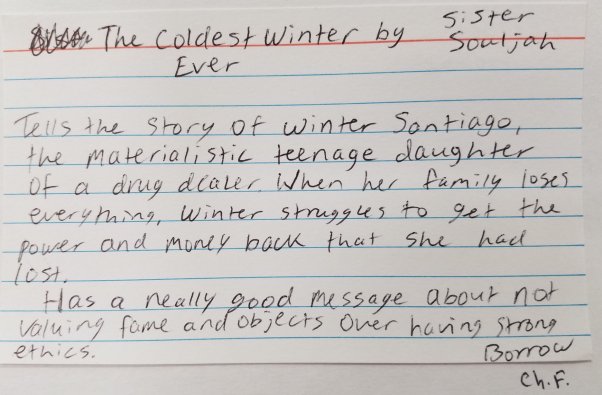 The Coldest Winter by Sister
Ever Souljah
Tells the story of Winter Santiago,
the materialistic teenage daughter
of a drug dealer. When her family loses
everything, Winter struggles to get the
power and money back that she had
lost.
Has a really good message about not
valuing fame and objects over having strong
ethics.
Borrow
Ch.F.